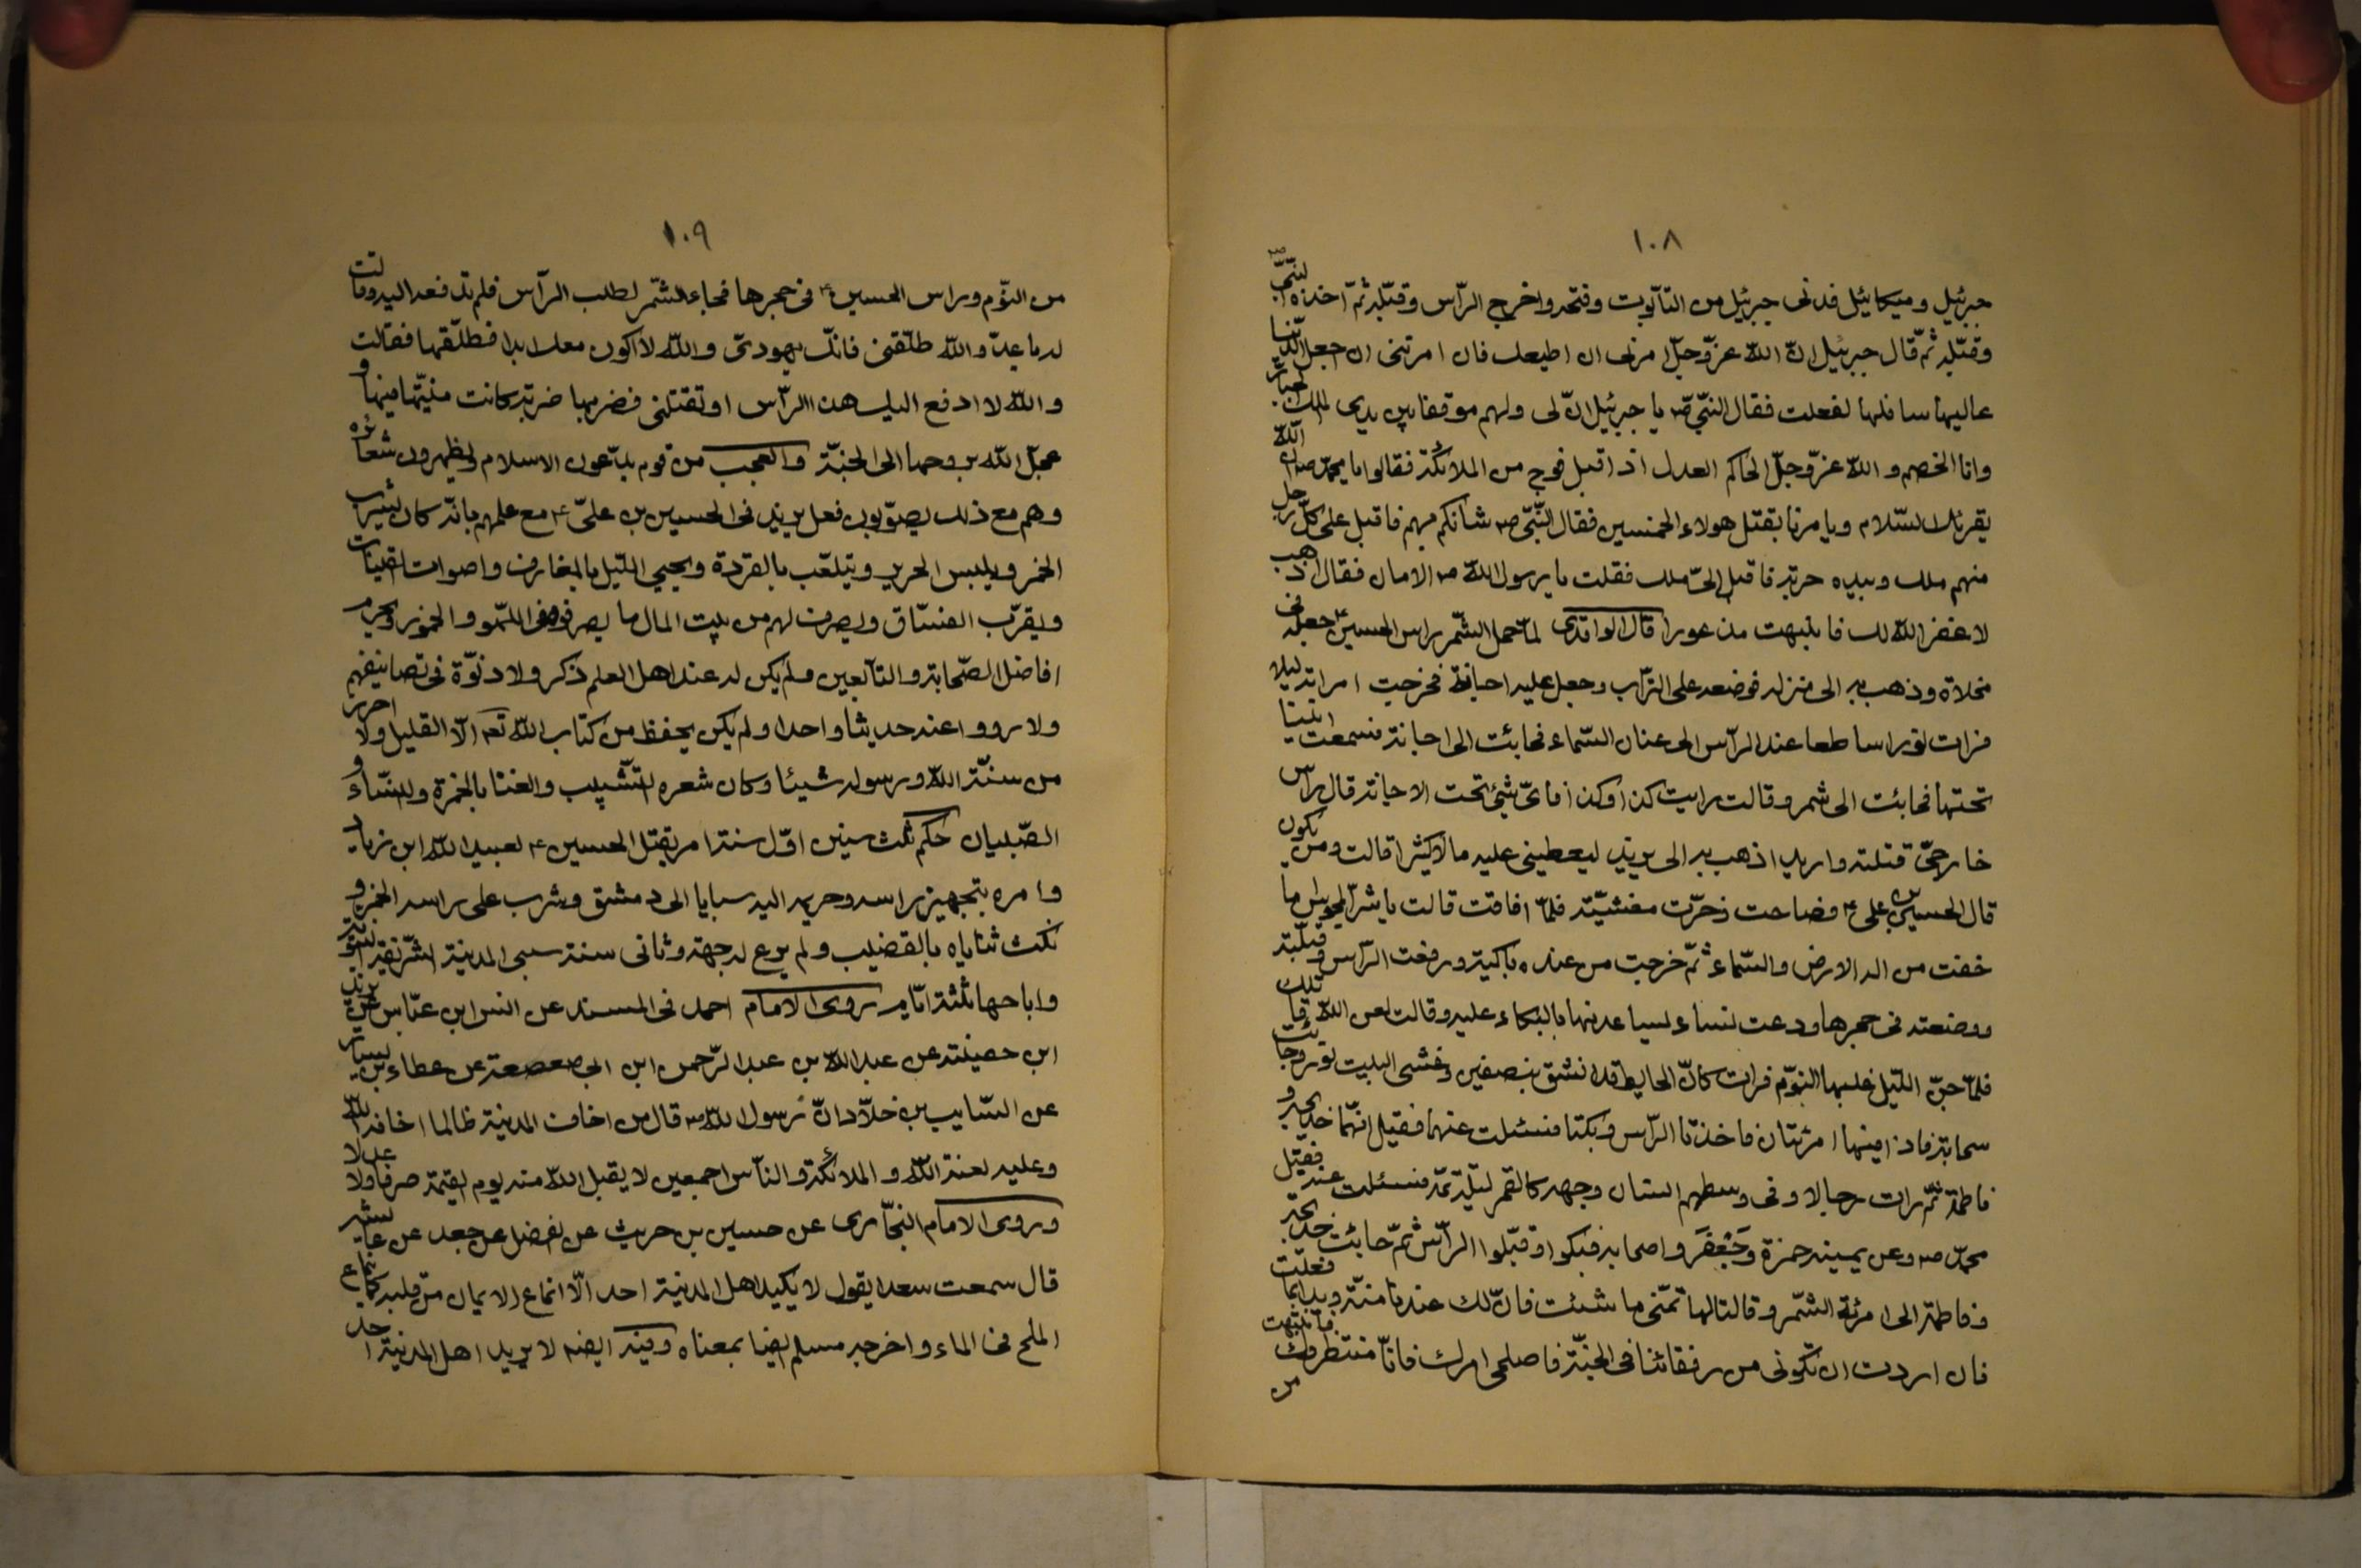 ١٠٨
جبرئيل وميكائيل فدنى جبرئيل من التآبوت وفتحه واخرج الرّاس وقبّله ثمّ اخذه النبّى ص
وقبّله ثمّ قال جبرئيل انّ اللّه عزّ وجلّ امرنى ان اطيعك فان امرتنى ان اجعل الدّنيا
عاليها سافلها لفعلت فقال النبّى ص يا جبرئيل انّ لى ولهم موقفا بين يدى الملك الجبّار
وانا الخصم و اللّه عزّ وجلّ الحاكم العدل اذ اقبل فوج من الملائكة فقالوا يا محمّد ص ان اللّه
يقرئك السّلام ويامرنا بقتل هولاء الخمسين فقال النّبّى ص شانكم بهم فاقبل على كلّ رجل
منهم ملك وبيده حربة فاقبل الىّ ملك فقلت يا رسول اللّه ص الامان فقال اذهب
لا غفر اللّه لك فانتبهت مذعورا قال الواقدى لمّا حمل الشّمر براس الحسين ع جعله فى
مخلاة وذهب به الى منزله فوضعه على التّراب وجعل عليه اجانة فخرجت امراته ليلا
فرات نورا ساطعا عند الرّاس الى عنان السّماء فجائت الى اجانة فسمعت انينا
تحتها فجائت الى شمر وقالت رايت كذا وكذا فاىّ شئ تحت الاجانة قال راس
خارجىّ قتلته واريد اذهب به الى يزيد ليعطينى عليه مالا كثيرا قالت ومن يكون
قال الحسين بن على ع فصاحت وخرّت مغشيّة فلمّا افاقت قالت يا شرّ المجوس اما
خفت من اله الارض والسّماء ثمّ خرجت من عنده باكية ورفعت الرّاس وقبّلته
ووضعته فى حجرها ودعت نساء يساعدنها بالبكاء عليه وقالت لعن اللّه قاتلك
فلمّا جنّ اللّيل غلبها النوّم فرات كانّ الحايط قد انشقّ بنصفين وغشى البيت نور وجائت
سحابة فاذا فيها امرئتان فاخذتا الرّاس وبكتا فسئلت عنهما فقيل انّهما خديجة و
فاطمة ثمّ رات رجالا وفى وسطهم انسان وجهه كالقمر ليلة تمّه فسئلت عنه فقيل
محمّد ص وعن يمينه حمزة وجَعْفَر واصحابه فبكوا وقبّلوا الرّاس ثمّ جائت خديجة
وفاطمة الى امرئة الشّمر وقالتا لها تمنّى ما شئت فانّ لك عندنا منّة ويدا بما فعلت
فان اردت ان تكونى من رفقائنا فى الجنّة فاصلحى امرك فانّا منتظروك فانتبهت
من
١٠٩
من النوّم وراس الحسين ع فى حجرها فجاء الشّمر لطلب الرّآس فلم تدفعه اليه وقالت
له يا عدوّ اللّه طلّقنى فانّك يهودىّ واللّه لا اكون معك ابدا فطلّقها فقالت
واللّه لا ادفع اليك هذا الرّاس او تقتلنى فضربها ضربة كانت منيّتها فيها و
عجّل اللّه بروحها الى الجنّة والعجب من قوم يدّعون الاسلام ويظهرون شعائره
وهم مع ذلك يصوّبون فعل يزيد فى الحسين بن علىّ ع مع علمهم بانّه كان يشرب
الخمر ويلبس الحرير ويتلعّب بالقردة ويحيى اللّيل بالمعازف واصوات القينات
ويقرّب الفسّاق ويصرف لهم من بيت المال ما يصرفونه فى اللّهو والخمور ويحرم
افاضل الصّحابة والتآبعين ولم يكن له عند اهل العلم ذكر ولا دنوّه فى تصانيفهم
ولا رووا عنه حديثا واحدا ولم يكن يحفظ من كتاب اللّه تعـ الّا القليل ولا احرز
من سنّة اللّه ورسوله شيئا وكان شعره التّشبيب والغنا بالخمرة والنّساء و
الصّبيان حكم ثلث سنين اوّل سنة امر بقتل الحسين ع لعبيد اللّه ابن زياد
وامره بتجهيز راسه وحريمه اليه سبايا الى دمشق وشرب على راسه الخمر و
نكث ثناياه بالقضيب ولم يرع له جهة وثانى سنة سبى المدينة الشّريفة النّبويّة
واباحها ثلثة ايّام روى الامام احمد فى المسند عن انس ابن عبّاس عن يزيد
ابن حصيفة عن عبد اللّه بن عبد الرّحمن ابن ابى صعصعة عن عطاء بن يسار
عن السّايب بن خلّاد انّ رسول اللّه ص قال من اخاف المدينة ظالما اخافه اللّه
وعليه لعنة اللّه و الملائكة والنآس اجمعين لا يقبل اللّه منه يوم القيمة صرفا ولا عدلا
وروى الامام البخّارى عن حسين بن حريث عن الفضل عن جعد عن عايشة
قال سمعت سعدا يقول لا يكيد اهل المدينة احد الّا انماع الايمان من قلبه كما ينماع
الملح فى الماء واخرجه مسلم ايضا بمعناه وفيه ايضه لا يريد اهل المدينة احد